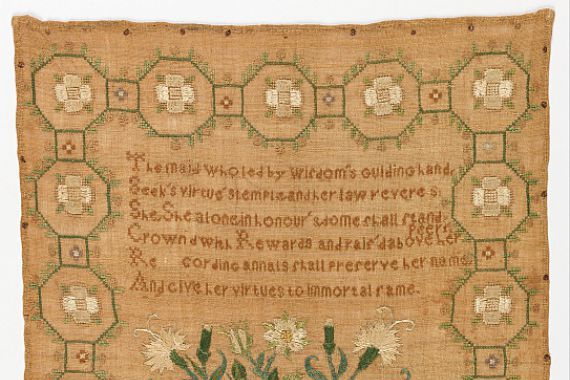 The maid who led by Wisdom's Guiding hand,
Seek's virtue's temple and her law reveres:
She, She alone in honour's dome shall stand,
Crown'd with Rewards and rais'd above her
peers
Re cording annals shall preserve her name,
And Give her virtues to immortal fame.